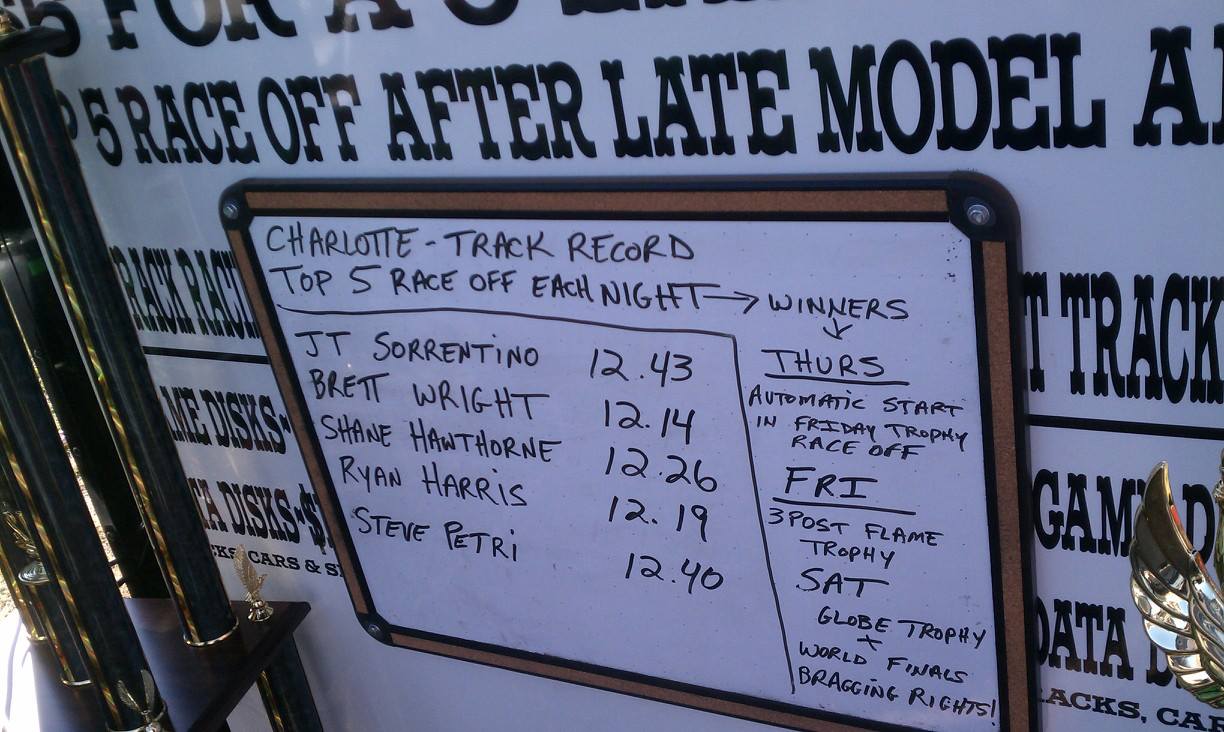 FOR A
5 RACE OFF AFTER LATE MODEL
CHARLOTTE - TRACK RECORD
TOP 5 RACE OFF EACH NIGHT → WINNERS
JT SORRENTINO 12.43
BRETT WRIGHT 12.14
SHANE HAWTHORNE 12.26
RYAN HARRIS 12.19
STEVE PETRI 12.40
THURS
AUTOMATIC START
IN FRIDAY TROPHY
RACE OFF
FRI
3 POST FLAME
TROPHY
SAT
GLOBE TROPHY
+
WORLD FINALS
BRAGGING RIGHTS!
TRACK
DISKS-
DISKS-$
CARS &
DATA